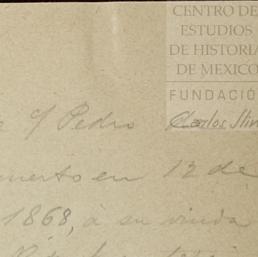 CENTRO DE
ESTUDIOS
DE HISTORIA
DE MEXICO
FUNDACIÓ
Pedro Carlos Slim
muerto en 12 de
1868, á su viuda